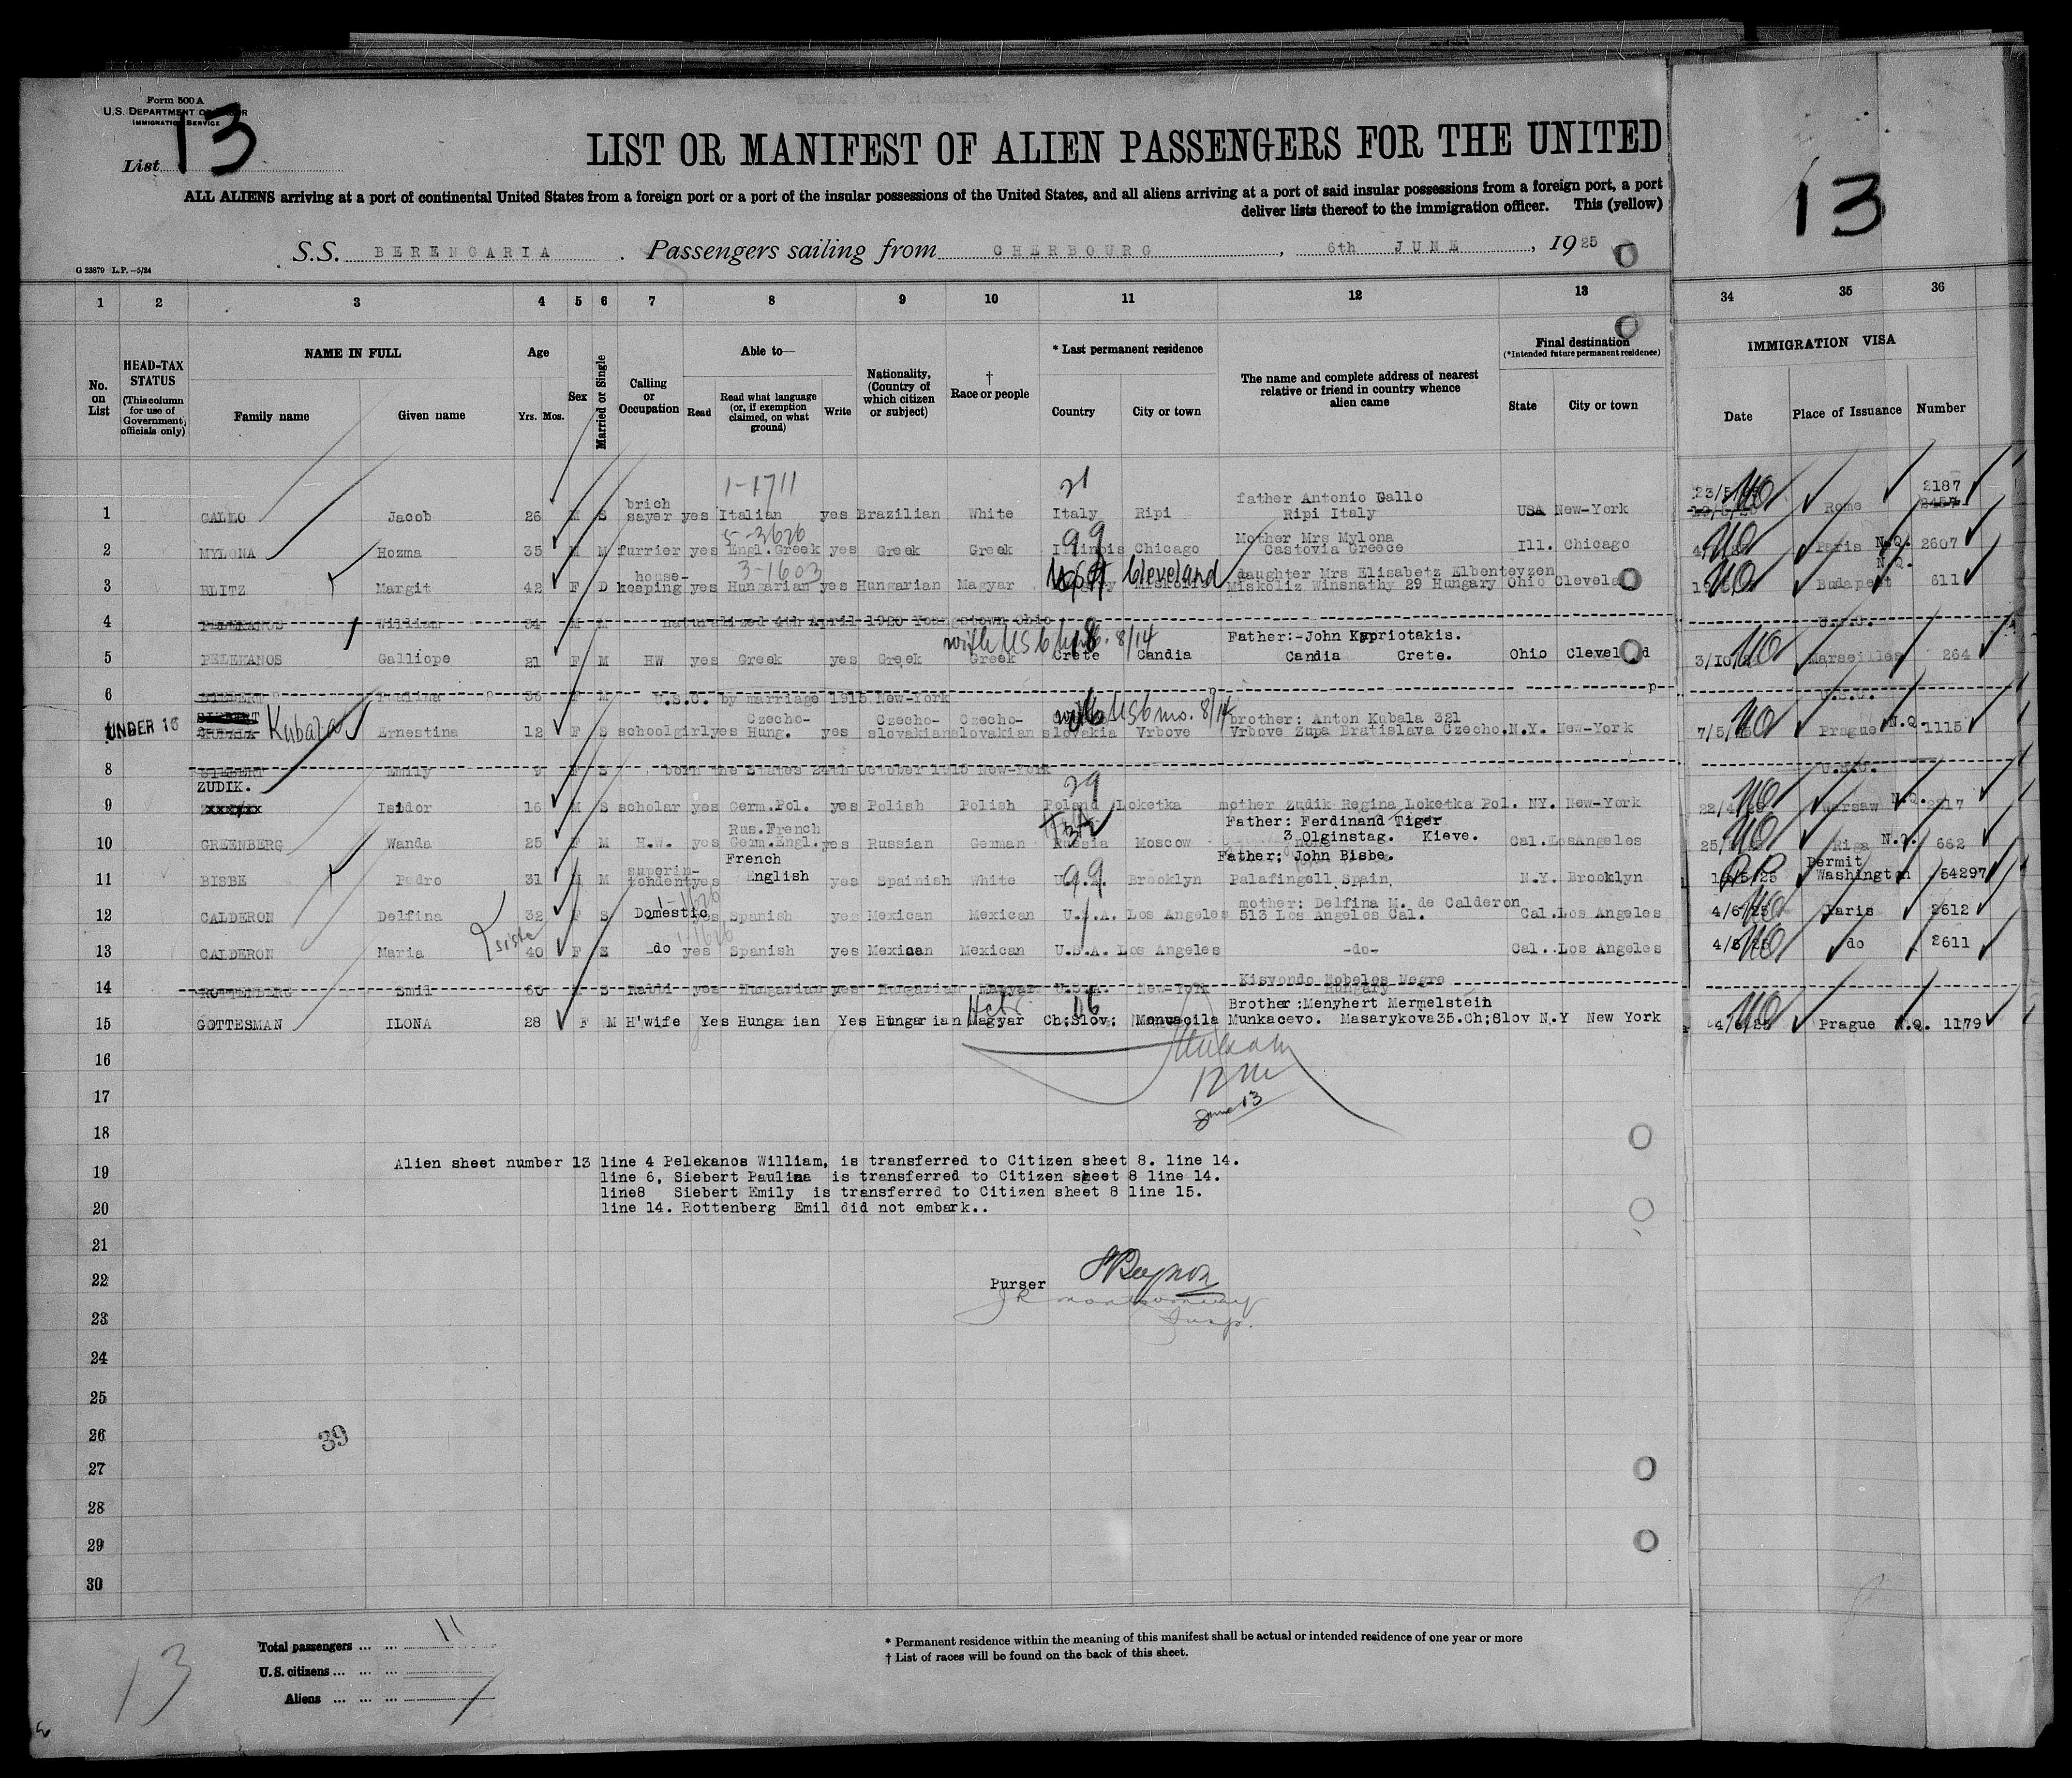 Form 500 A
U.S. DEPARTMENT OF LABOR
IMMIGRATION SERVICE
List 13
LIST OR MANIFEST OF ALIEN PASSENGERS FOR THE UNITED
13
ALL ALIENS arriving at a port of continental United States from a foreign port or a port of the insular possessions of the United States, and all aliens arriving at a port of said insular possessions from a foreign port, a port
deliver lists thereof to the immigration officer. This (yellow)
S.S. BERENGARIA. Passengers sailing from CHERBOURG, 6th JUNE, 1925
G 23879 L.P.—5/24
1 2 3 4 5 6 7 8 9 10 11 12 13 34 35 36
No. on List
HEAD-TAX STATUS (This column for use of Government officials only)
NAME IN FULL Family name Given name
Age Yrs. Mos.
Sex
Married or Single
Calling or Occupation
Able to— Read Read what language (or, if exemption claimed, on what ground) Write
Nationality, (Country of which citizen or subject)
† Race or people
* Last permanent residence Country City or town
The name and complete address of nearest relative or friend in country whence alien came
Final destination (*Intended future permanent residence) State City or town
IMMIGRATION VISA Date Place of Issuance Number
1-1711 21
brich father Antonio Gallo 23/5/ 2187
1 GALLO Jacob 26 M S sayer yes Italian yes Brazilian White Italy Ripi Ripi Italy USA New-York Rome
5-3626 99 Mother Mrs Mylona
2 MYLONA Hozma 35 M M furrier yes Engl.Greek yes Greek Greek Illinois Chicago Castovia Greece Ill. Chicago Paris N.Q. 2607
house- 3-1603 USA Cleveland daughter Mrs Elisabetz Elbentevzen N.Q.
3 BLITZ Margit 42 F D keeping yes Hungarian yes Hungarian Magyar Miskoliz Winsnathy 29 Hungary Ohio Cleveland Budapest 611
4 PELEKANOS William 34 M M naturalized 4th April 1920 Youngstown Ohio U.S.C.
with US 6 mo. 8/14 18 Father:-John Kapriotakis.
5 PELEKANOS Galliope 21 F M HW yes Greek yes Greek Greek Crete Candia Candia Crete. Ohio Cleveland 3/10/ Marseilles 264
6 SIEBERT Paulina 36 F M U.S.C. by marriage 1915 New-York U.S.C.
UNDER 16 SIEBERT Czecho- Czecho- Czecho- with US 6 mo. 8/14 brother: Anton Kubala 321
KUBALA Kubala Ernestina 12 F S schoolgirl yes Hung. yes slovakian slovakian slovakia Vrbove Vrbove Zupa Bratislava Czecho. N.Y. New-York 7/5/ Prague N.Q. 1115
8 SIEBERT Emily 9 F S born the States 24th October 1915 New-York U.S.C.
ZUDIK. 29
9 Isidor 16 M S scholar yes Germ.Pol. yes Polish Polish Poland Loketka mother Zudik Regina Loketka Pol. NY. New-York 22/4/ Warsaw N.Q.
Rus.French Father: Ferdinand Tiger
10 GREENBERG Wanda 25 F M H.W. yes Germ.Engl. yes Russian German Russia Moscow 3 Olginstag. Kieve. Cal. LosAngeles 25/ Riga N.Q. 662
superin- French 99 Father; John Bisbe. Permit
11 BISBE Pedro 31 M M tendent yes English yes Spainish White U.S.A. Brooklyn Palafingell Spain, N.Y. Brooklyn Washington 54297
1-1626 mother: Delfina M. de Calderon
12 CALDERON Delfina 32 F S Domestic yes Spanish yes Mexican Mexican U.S.A. Los Angeles 513 Los Angeles Cal. Cal. Los Angeles 4/6/25 Paris 2612
sister 1-1626
13 CALDERON Maria 40 F S do yes Spanish yes Mexican Mexican U.S.A. Los Angeles -do- Cal.. Los Angeles do 2611
Kisvondo Mobeles Megre
14 ROTTENBERG Emil 60 M S Rabbi yes Hungarian yes Hungarian Magyar U.S.A. New-York Hungary
Hebr. 16 Brother :Menyhert Mermelstein
15 GOTTESMAN ILONA 28 F M H'wife Yes Hungarian Yes Hungarian Magyar Ch;Slov; Munkacevo. Masarykova35.Ch;Slov N.Y New York Prague N.Q. 1179
16
17 June 13
18
Alien sheet number 13 line 4 Pelekanos William, is transferred to Citizen sheet 8. line 14.
19 line 6, Siebert Paulina is transferred to Citizen sheet 8 line 14.
line8 Siebert Emily is transferred to Citizen sheet 8 line 15.
20 line 14. Rottenberg Emil did not embark..
21
22 Purser
23 J R Montgomery Insp.
24
25
26 39
27
28
29
30
Total passengers ... ... 11
U.S. citizens ... ... ...
Aliens ... ... ...
13
* Permanent residence within the meaning of this manifest shall be actual or intended residence of one year or more
† List of races will be found on the back of this sheet.